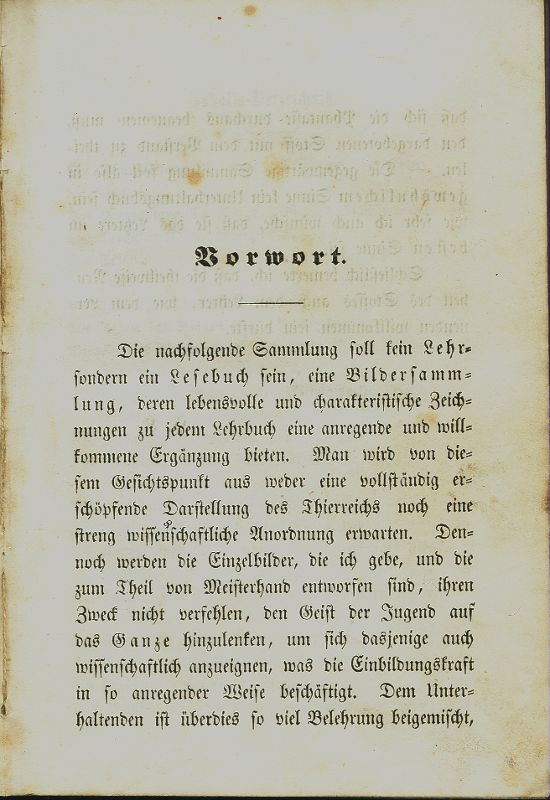 Vorwort.
Die nachfolgende Sammlung soll kein Lehr-
sondern ein Lesebuch sein, eine Bildersamm-
lung, deren lebensvolle und charakteristische Zeich-
nungen zu jedem Lehrbuch eine anregende und will-
kommene Ergänzung bieten. Man wird von die-
sem Gesichtspunkt aus weder eine vollständig er-
schöpfende Darstellung des Thierreichs noch eine
streng wissenschaftliche Anordnung erwarten. Den-
noch werden die Einzelbilder, die ich gebe, und die
zum Theil von Meisterhand entworfen sind, ihren
Zweck nicht verfehlen, den Geist der Jugend auf
das Ganze hinzulenken, um sich dasjenige auch
wissenschaftlich anzueignen, was die Einbildungskraft
in so anregender Weise beschäftigt. Dem Unter-
haltenden ist überdies so viel Belehrung beigemischt,